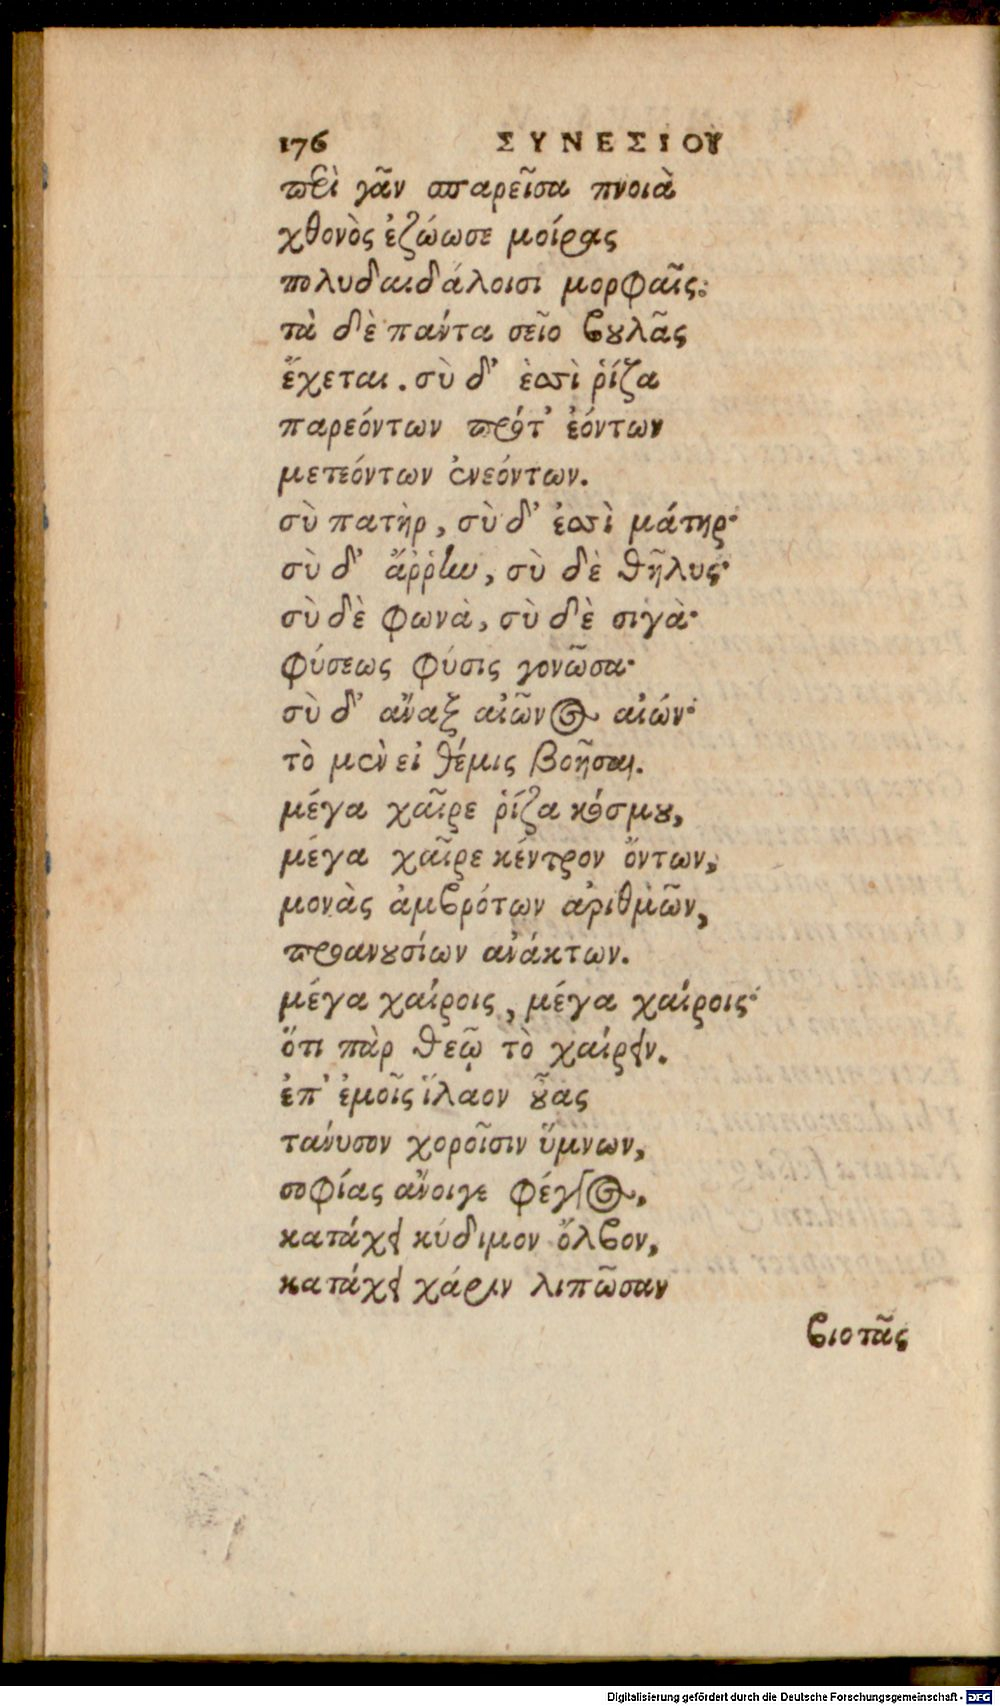 176 ΣΥΝΕΣΙΟΥ
περὶ γᾶν σπαρεῖσα πνοιὰ
χθονὸς ἐζώωσε μοίρας
πολυδαιδάλοισι μορφαῖς·
τὰ δὲ πάντα σεῖο βουλᾶς
ἔχεται. σὺ δ' ἐσσὶ ῥίζα
παρεόντων πρότ' ἐόντων
μετεόντων ἐνεόντων.
σὺ πατὴρ, σὺ δ' ἐσσὶ μάτηρ·
σὺ δ' ἄῤῥην, σὺ δὲ θῆλυς·
σὺ δὲ φωνὰ, σὺ δὲ σιγὰ·
φύσεως φύσις γονῶσα·
σὺ δ' ἄναξ αἰῶνος αἰών·
τὸ μὲν εἰ θέμις βοῆσαι.
μέγα χαῖρε ῥίζα κόσμου,
μέγα χαῖρε κέντρον ὄντων,
μονὰς ἀμβρότων ἀριθμῶν,
προανουσίων ἀνάκτων.
μέγα χαίροις, μέγα χαίροις·
ὅτι πὰρ θεῷ τὸ χαίρειν.
ἐπ' ἐμοῖς ἵλαον οὖας
τάνυσον χοροῖσιν ὕμνων,
σοφίας ἄνοιγε φέγγος,
κατάχει κύδιμον ὄλβον,
κατάχει χάριν λιπῶσαν
βιοτᾶς
Digitalisierung gefördert durch die Deutsche Forschungsgemeinschaft - DFG